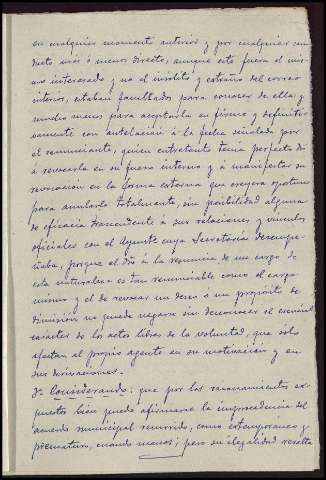 en cualquier momento anterior y por cualquier con-
ducto más ó menos directo, aunque este fuera el mis-
mo interesado y no el insólito y extraño del correo
interior, estaban facultados para conocer de ella y
mucho menos para aceptarla en firme y definitiva-
mente con antelación á la fecha señalada por
el renunciante, quien entretanto tenía perfecto dro
á revocarla en su fuero interno y á manifestar su
revocación en la forma externa que creyera oportuna
para anularla totalmente, sin posibilidad alguna
de eficacia trascendente á sus relaciones y vínculos
oficiales con el Ayunto cuya Secretaría desempe-
ñaba, porque el dro á la renuncia de un cargo de
esta naturaleza es tan renunciable como el cargo
mismo y el de revocar un deseo o un propósito de
dimisión no puede negarse sin desconocer el esencial
carácter de los actos libres de la voluntad, que solo
afectan al propio agente en su motivación y en
sus derivaciones.
Considerando: que por los razonamientos ex-
puestos bien puede afirmarse la improcedencia del
acuerdo municipal recurrido, como extemporáneo y
prematuro, cuando menos; pero su ilegalidad resalta